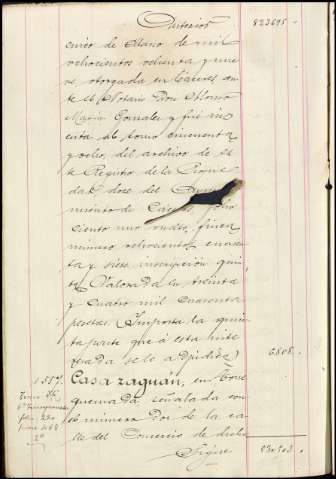 Anterior 823695.
cinco de Marzo de mil
ochocientos ochenta y nue
ve, otorgada en Cáceres an
te el Notario Don Alonso
Marin Gonzalez y fué ins
crita al tomo cincuenta
y ocho, del archivo de es
te Registro de la Propie
dad, doce del
miento de Cáceres, folio
ciento uno finca
número ochocientos cincuen
ta y siete, inscripción quin
ta. Valorada en treinta
y cuatro mil cuarenta
pesetas. (Importa la quin
ta parte que á esta inte
resada se le adjudica) 6.808.
1557. Casa zaguán, en Torre
Tomo
quemada señalada con
folio
el número Dos de la ca
2ª
lle del Comercio de dicho
Sigue 830503.